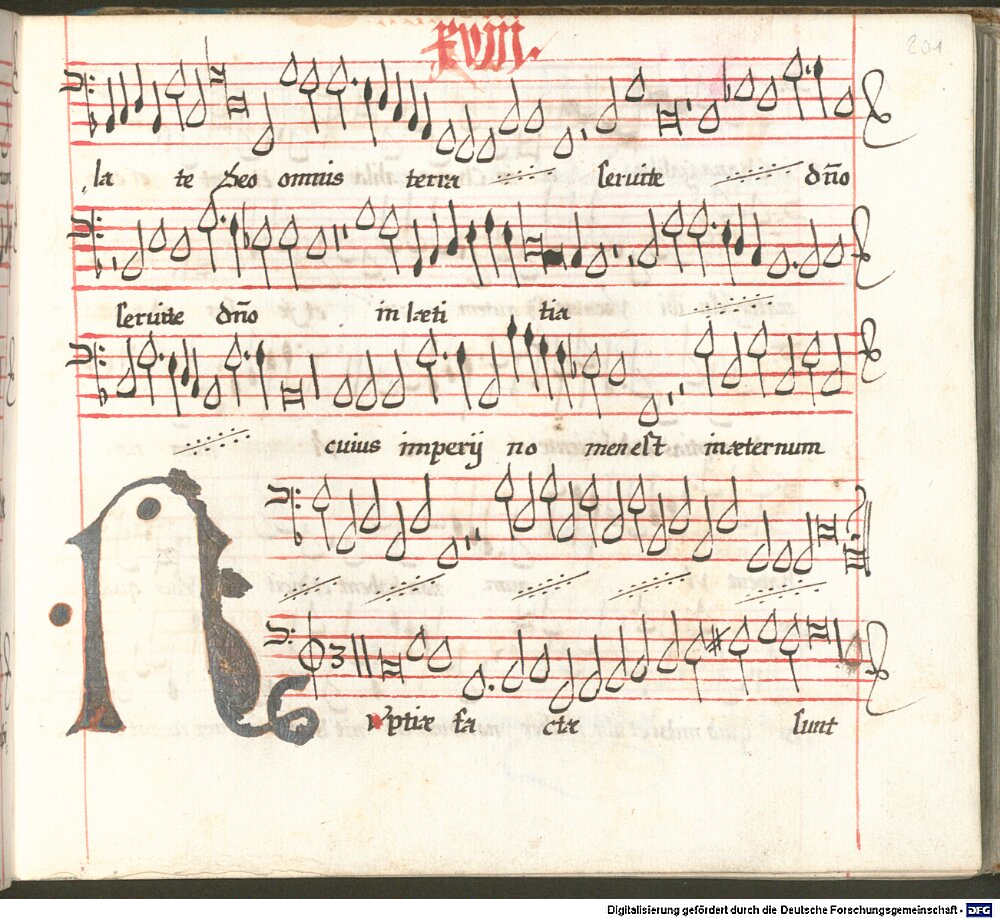 xviij.
201
la te Deo omnis terra seruite dño
seruite dño in læti tia
cuius imperij no men est in æternum
N
Vptiæ fa ctæ sunt
Digitalisierung gefördert durch die Deutsche Forschungsgemeinschaft - DFG